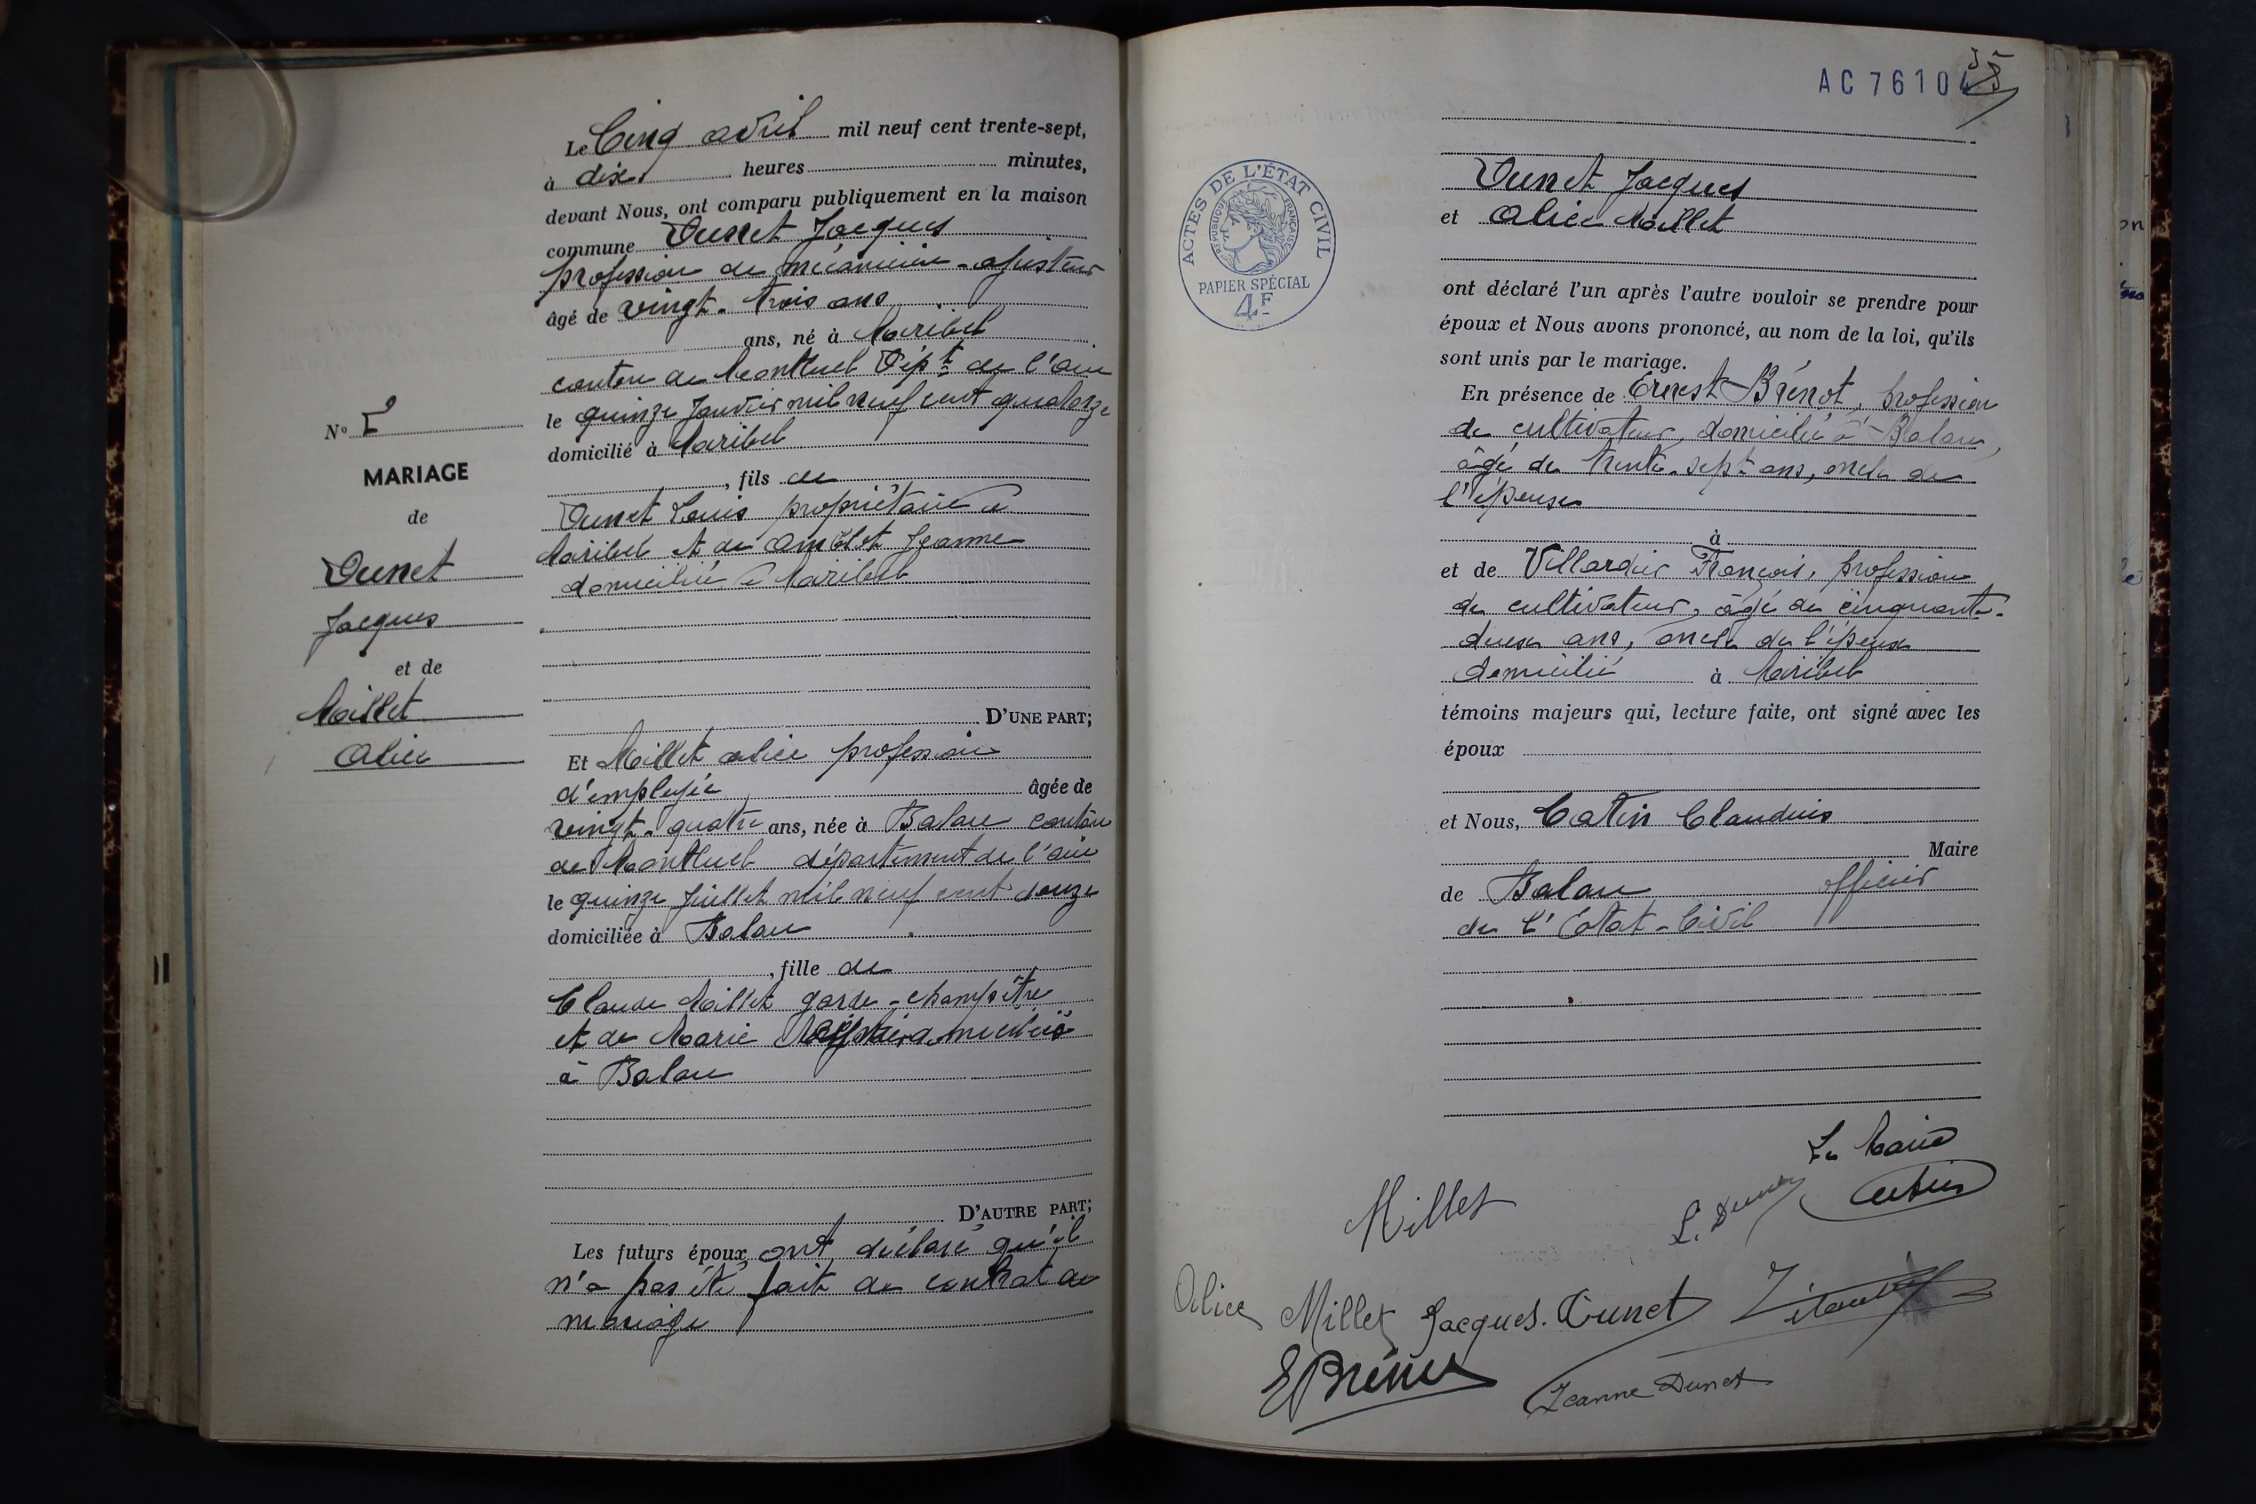 Le Cinq avril mil neuf cent trente-sept,
à dix heures minutes,
devant Nous, ont comparu publiquement en la maison
commune Dunet Jacques
profession de mécanicien-ajusteur
âgé de vingt-trois ans
ans, né à Miribel
canton de Montluel Dépt de l'ain
le quinze Janvier mil neuf cent quatorze
domicilié à Miribel
, fils de
Dunet Louis propriétaire à
Miribel et de Jeanne
domiciliée à Miribel
D'UNE PART;
Et Millet alice profession
d'employée âgée de
vingt-quatre ans, née à Balan canton
de Montluel département de l'ain
le quinze Juillet mil neuf cent douze
domiciliée à Balan
, fille de
Claude Millet garde-champêtre
et de Marie domiciliés
à Balan
D'AUTRE PART;
Les futurs époux ont déclaré qu'il
n'a pas été fait de contrat de
mariage
No 2
MARIAGE
de
Dunet
Jacques
et de
Millet
Alice
AC 7610
ACTES DE L'ÉTAT CIVIL
RÉPUBLIQUE FRANÇAISE
PAPIER SPÉCIAL
4F
Dunet Jacques
et Alice Millet
ont déclaré l'un après l'autre vouloir se prendre pour
époux et Nous avons prononcé, au nom de la loi, qu'ils
sont unis par le mariage.
En présence de Ernest Brénot, profession
de cultivateur, domicilié à Balan,
âgé de trente-sept ans, oncle de
l'épouse
à
et de Villardier François, profession
de cultivateur, âgé de cinquante-
deux ans, oncle de l'époux
domicilié à Miribel
témoins majeurs qui, lecture faite, ont signé avec les
époux
et Nous, Catin Claudius
Maire
de Balan officier
de l'Etat-Civil
Le Maire
Catin
Millet
L. Dunet
Alice Millet Jacques. Dunet
Jeanne Dunet